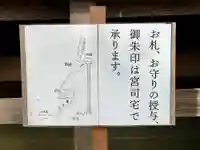 お札、お守りの授与、
御朱印は宮司宅で
承ります。